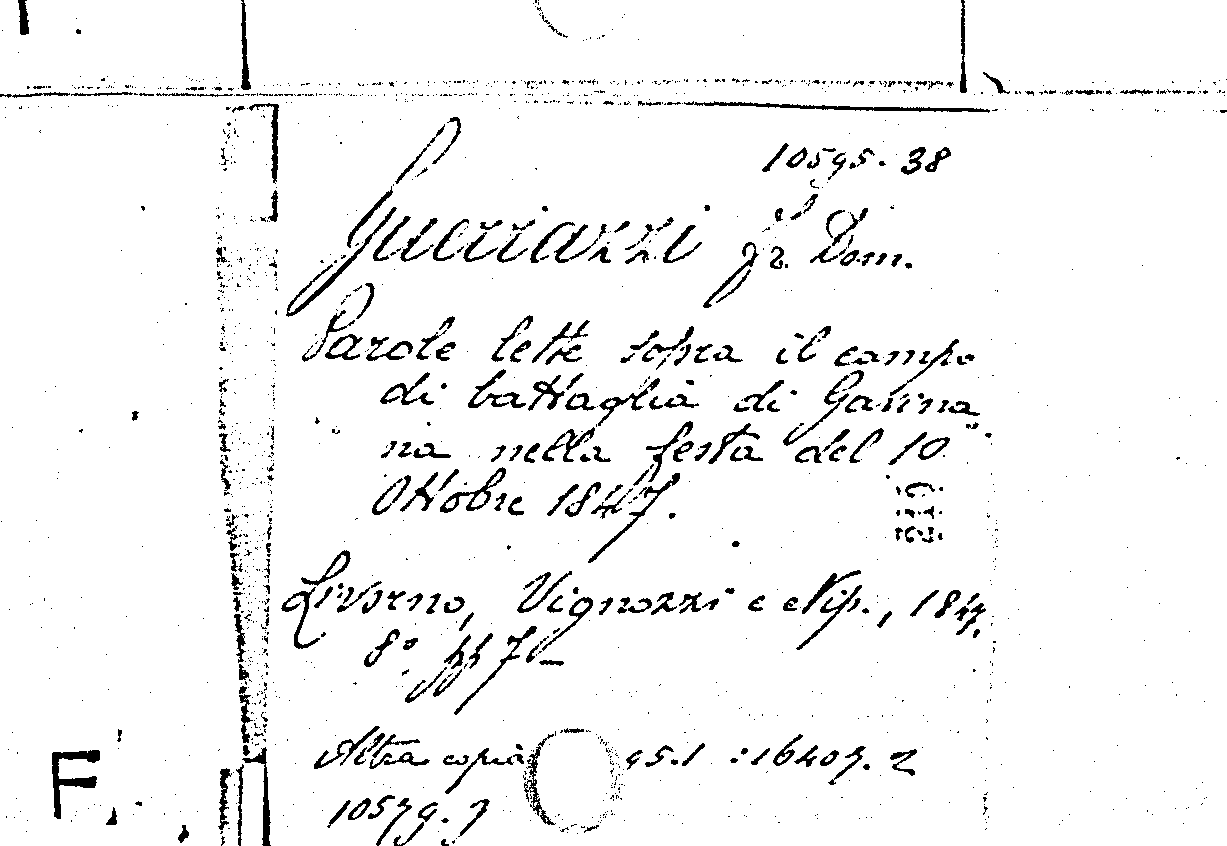 10595. 38
Guerrazzi Fr. Dom.
Parole lette sopra il campo
di battaglia di Gavina
na nella festa del 10
Ottobre 1847.
Livorno, Vignozzi e Nip., 1847.
8° pp 7 –
Altra copia 95.1 : 16407. 2
10579. 7
F.